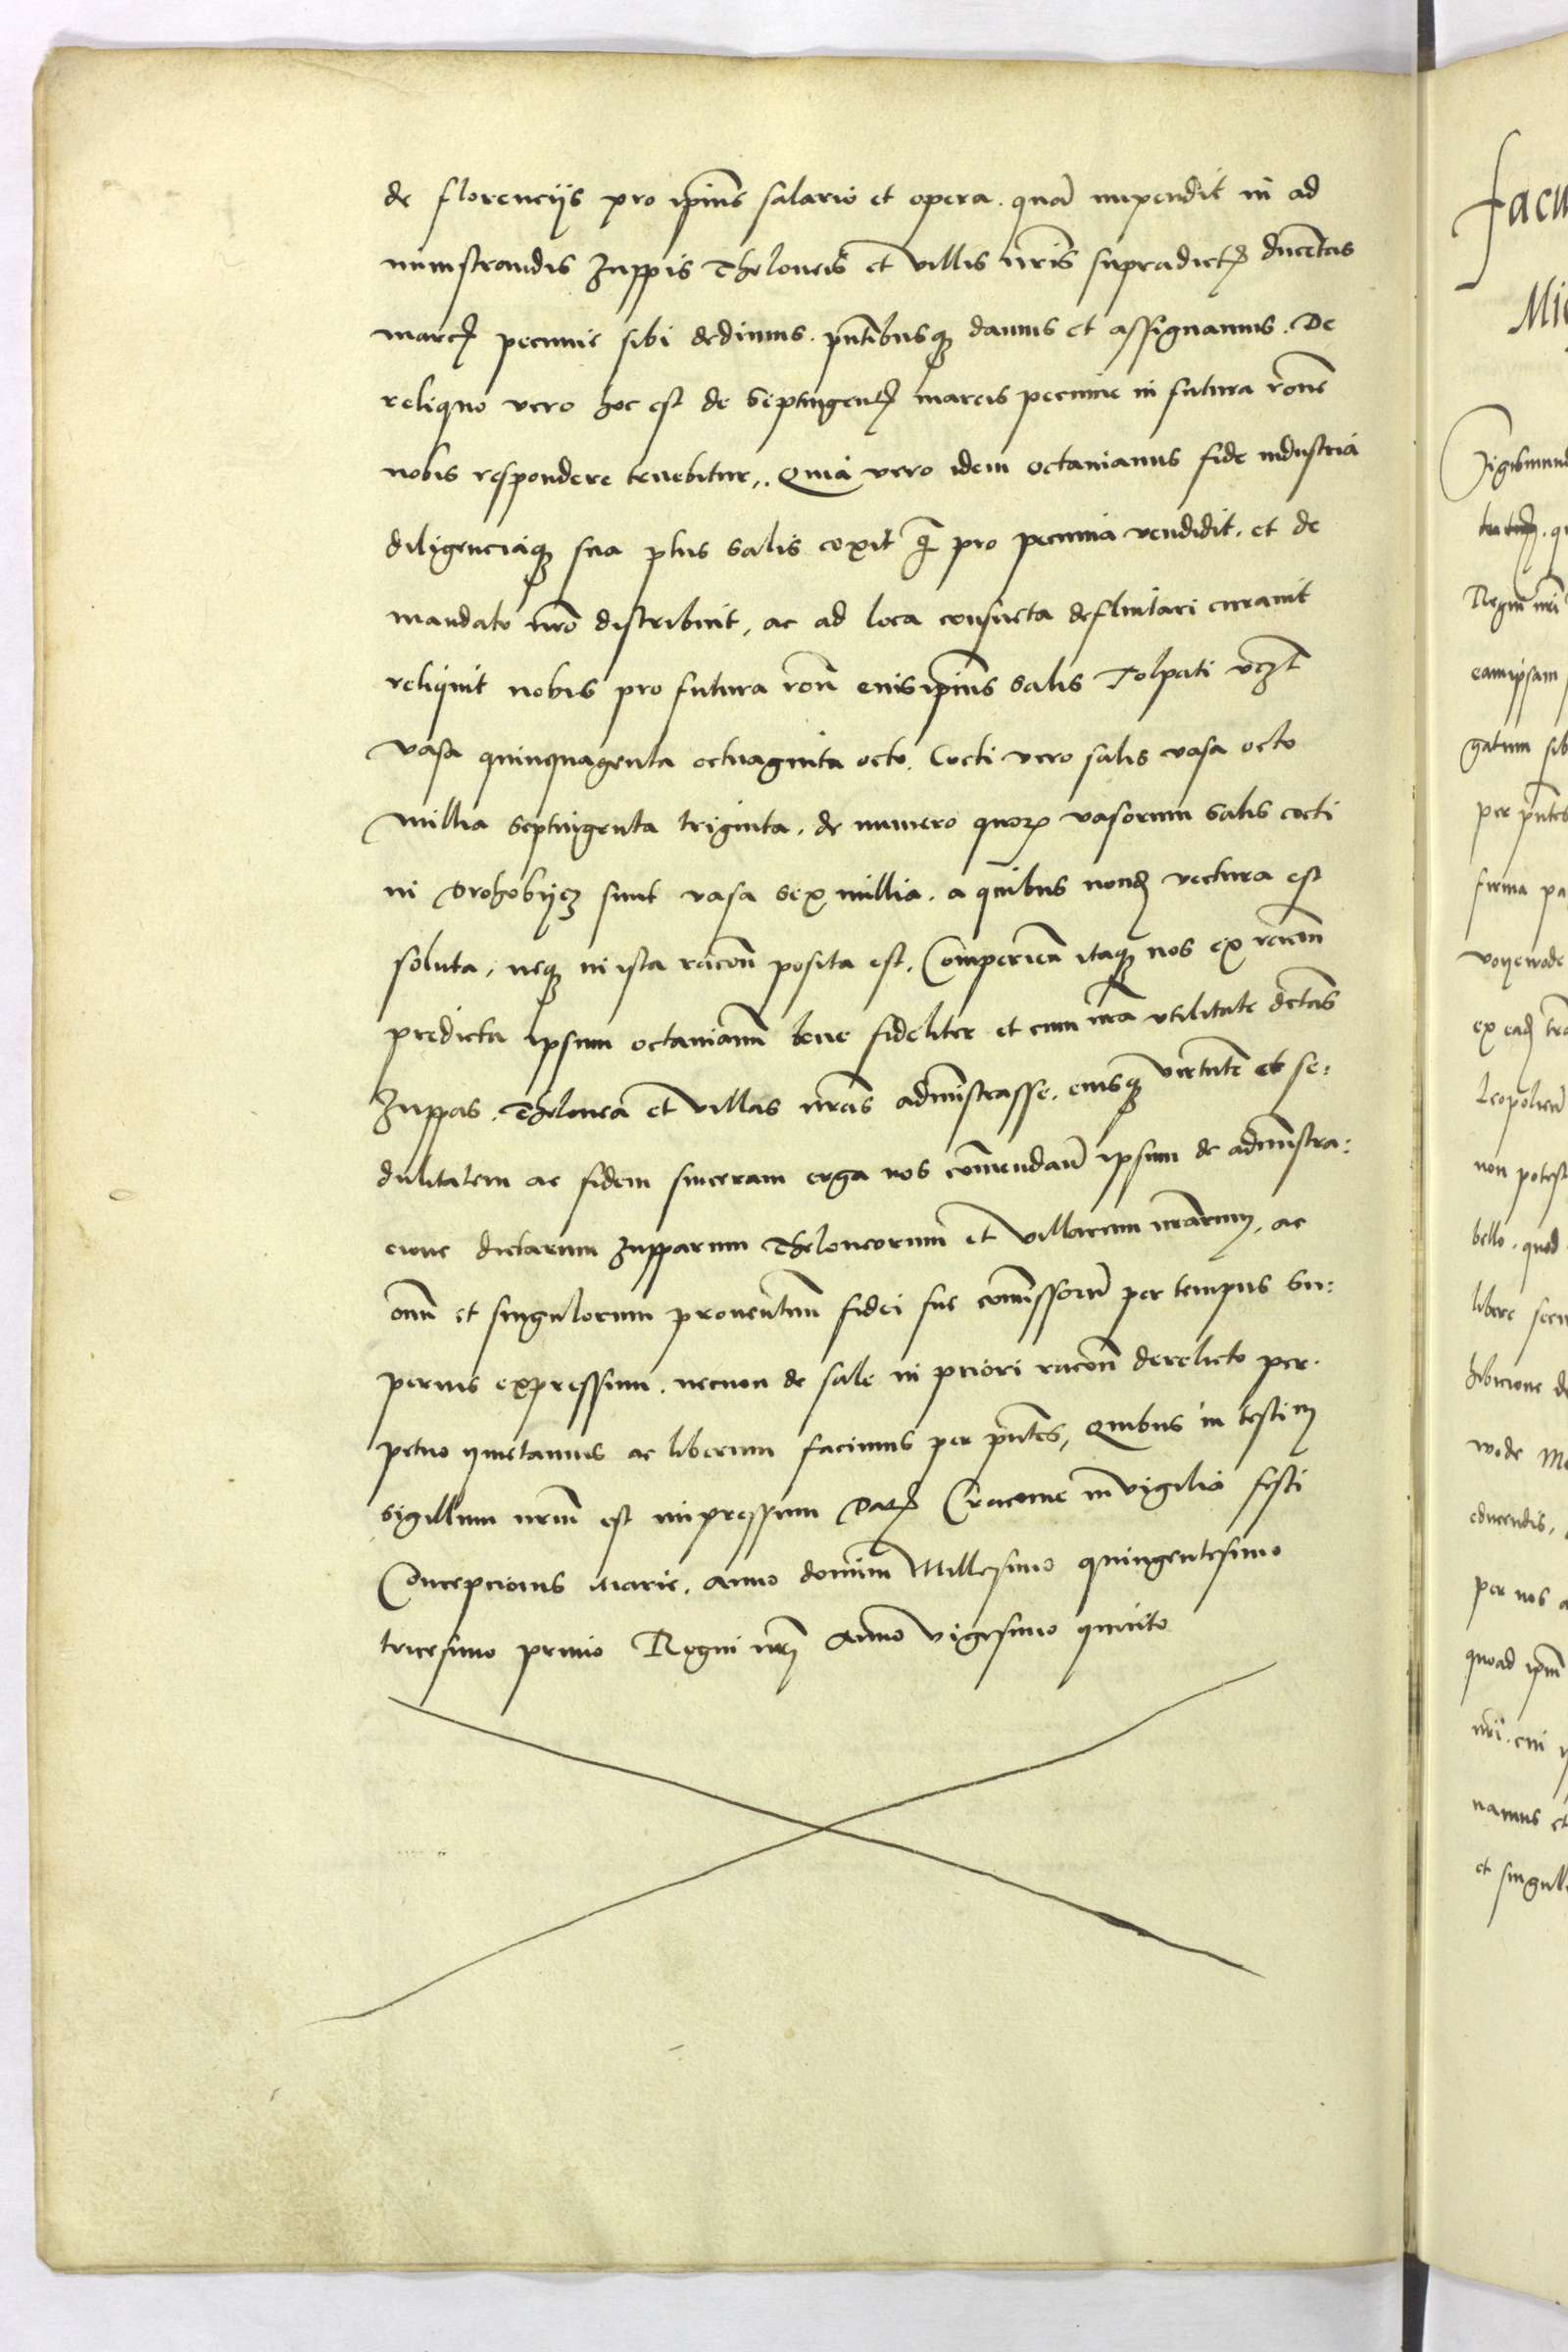 de florencijs pro ipīus salario et opera. quā impendit in ad
ministrandis Zuppis Theloneis et villis nr̄is supradictꝭ ducētas
marcꝭ pecunie sibi dedimus. pn̄tibusqꝫ damus et assignamus. De
reliquo vero hoc est de Septingentꝭ marcis pecunie in futura rōne
nobis respondere tenebitur,. Quia vero idem octauianus fide industria
diligenciaqꝫ sua plus salis coxit q̄ pro pecunia vendidit. et de
mandato nr̄o distribuit, ac ad loca consueta defluitari curauit
reliquit nobis pro futura rōn eiusipīus salis Tolpati vcꝫt
vasa quinquagenta octuaginta octo. Cocti vero salis vasa octo
millia septingenta triginta. de numero quoꝝ vasorum salis cocti
in Drohobijcꝫ sunt vasa sex millia. a quibus nondꝭ vectura est
soluta, neqꝫ in ista racōn posita est. Comperien̄ itaqꝫ nos ex racōn
predicta ipsum octauianū bene fideliter et cum nr̄a vtilitate dictas
Zuppas. Thelonea et villas nr̄as administrasse. eiusqꝫ virtutē et se:
dulitatem ac fidem sinceram erga nos comendan̄ ipsum de administra:
cione dictarum Zupparum Theloneorum et villarum nr̄arum, ac
om̄ et singulorum prouentuū fidei sue comissorū per tempus su:
perius expressum. necnon de sale in priori racōn derelicto per.
petuo quietamus ac liberum facimus per pn̄tes, Quibus in testim
sigillum nr̄um est impressum Datꝭ Cracouie in vigilia festi
Concepcionis Marie. anno domini Millesimo quingentesimo
tricesimo primo Regni nr̄i Anno vigesimo quinto
facu
Mi
Sigismund
Regni nr̄i
eamipsam
gatum sib
per pn̄tes
firma pa
voyewode
ex eadꝭ
Leopolien̄
non potest
bello. quod
libere
hibicione de
wode
educendis,
per nos a
quoad ipm̄
nr̄i. cui
namus et
et singul